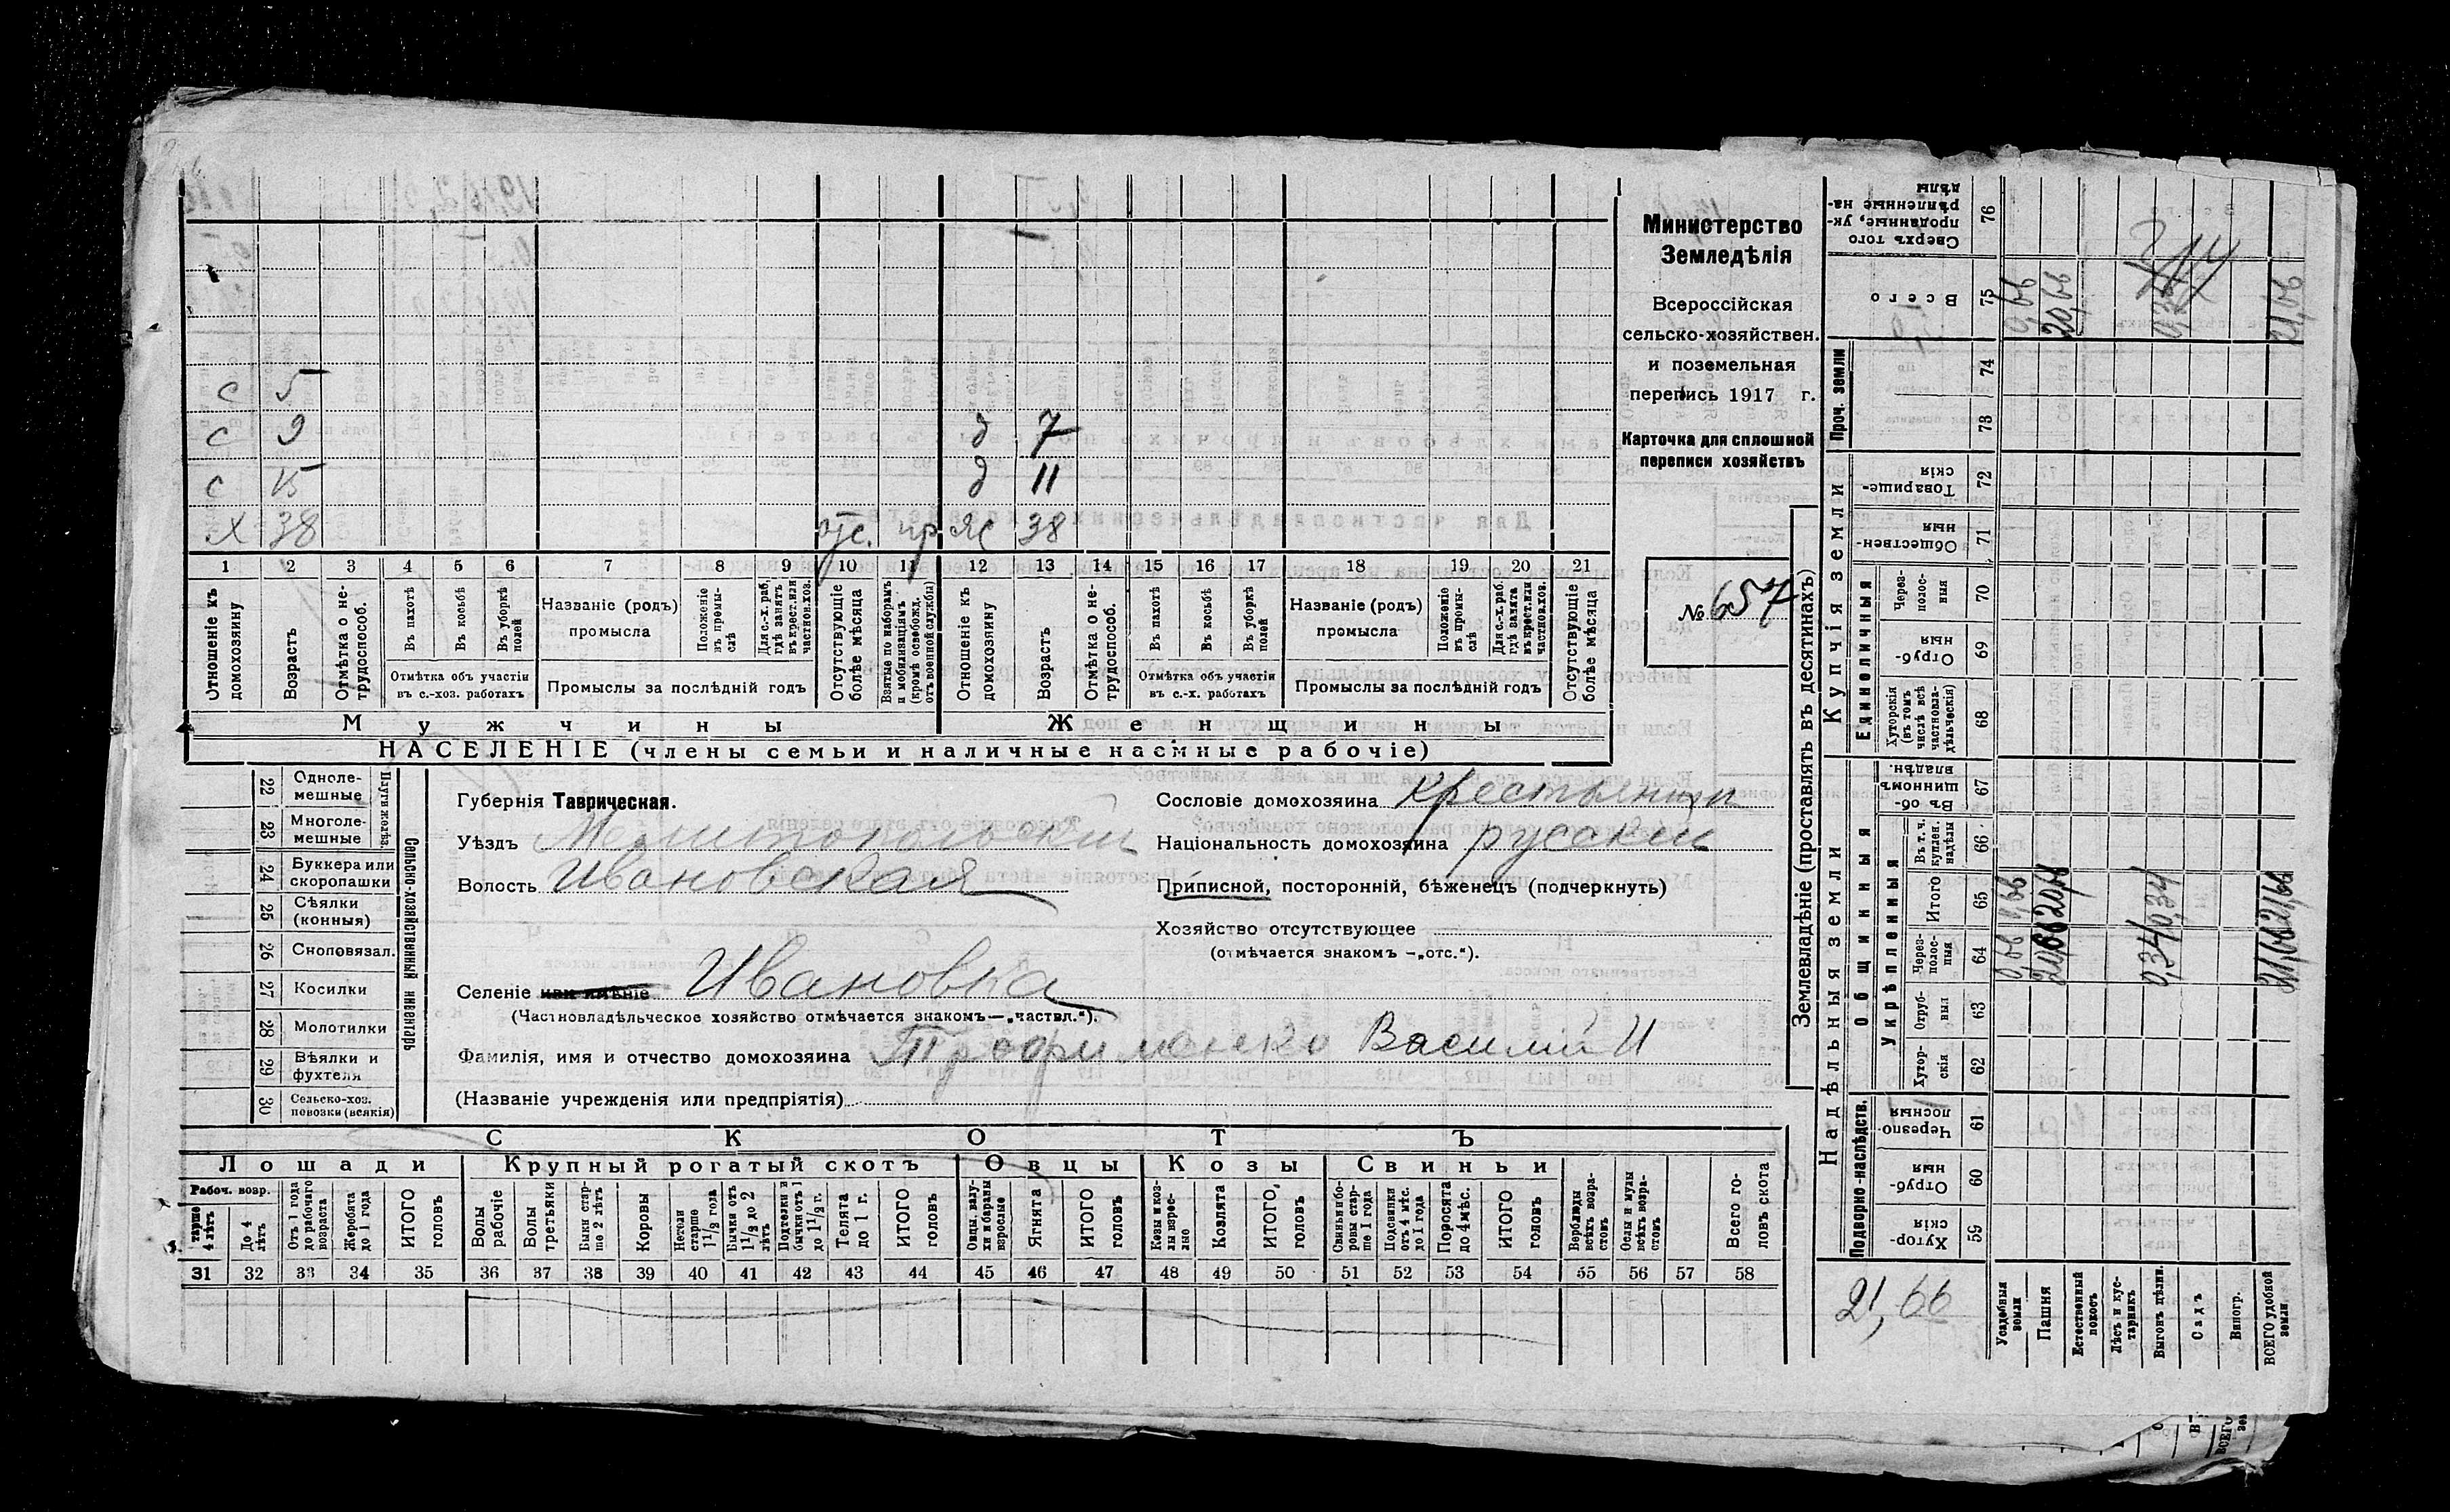 с 5
с 9 д 7
с 15 д 11
х 38 отс. пр ж 38
1 2 3 4 5 6 7 8 9 10 11 12 13 14 15 16 17 18 19 20 21
Отношеніе къ домохозяину
Возрастъ
Отмѣтка о не-трудоспособ.
Въ пахотѣ
Въ косьбѣ
Въ уборкѣ полей
Отмѣтка объ участіи въ с.-хоз. работахъ
Названіе (родъ) промысла
Положеніе въ промы-слѣ
Для с.-х. раб, гдѣ занятъ въ крест. или частнов. хоз.
Промыслы за послѣдній годъ
Отсутствующіе болѣе мѣсяца
Взятые по наборамъ и мобилизаціямъ (кромѣ освобожд. отъ военной службы)
Отношеніе къ домохозяину
Возрастъ
Отмѣтка о не-трудоспособ.
Въ пахотѣ
Въ косьбѣ
Въ уборкѣ полей
Отмѣтка объ участіи въ с.-х. работахъ
Названіе (родъ) промысла
Положеніе въ промы-слѣ
Для с.-х. раб. гдѣ занята въ крест. или частнов. хоз.
Промыслы за послѣдній годъ
Отсутствующіе болѣе мѣсяца
Мужчины Женщины
НАСЕЛЕНІЕ (члены семьи и наличные наемные рабочіе)
Министерство
Земледѣлія
Всероссійская
сельско-хозяйствен.
и поземельная
перепись 1917 г.
Карточка для сплошной
переписи хозяйствъ
№ 657
22 Одноле-мешные
23 Многоле-мешные
Плуги желѣз.
24 Буккера или скоропашки
25 Сѣялки (конныя)
26 Сноповязал.
27 Косилки
28 Молотилки
29 Вѣялки и фухтеля
30 Сельско-хоз. повозки (всякія)
Сельско-хозяйственный инвентарь
Губернія Таврическая.
Уѣздъ Мелитопольскій
Волость Ивановская
Селеніе или имѣніе Ивановка
(Частновладѣльческое хозяйство отмѣчается знакомъ—„частвл.“).
Фамилія, имя и отчество домохозяина Трофименко Василій И
(Названіе учрежденія или предпріятія)
Сословіе домохозяина Крестьянинъ
Національность домохозяина русскій
Приписной, посторонній, бѣженецъ (подчеркнуть)
Хозяйство отсутствующее
(отмѣчается знакомъ —„отс.“).
СКОТЪ
Лошади Крупный рогатый скотъ Овцы Козы Свиньи
Рабоч. возр.
старше 4 лѣтъ
До 4 лѣтъ
Отъ 1 года до рабочаго возраста
Жеребята до 1 года
ИТОГО головъ
Волы рабочіе
Волы третьяки
Быки стар-ше 2 лѣтъ
Коровы
Нетели старше 1½ года
Бычки отъ 1½ до 2 лѣтъ
Подтелки и бычки отъ 1 до 1½ г.
Телята до 1 г.
ИТОГО головъ
Овцы, валу-хи и бараны взрослые
Ягнята
ИТОГО головъ
Козы и коз-лы взрос-лые
Козлята
ИТОГО головъ
Свиньи и бо-ровы стар-ше 1 года
Подсвинки отъ 4 мѣс. до 1 года
Поросята до 4 мѣс.
ИТОГО головъ
Верблюды всѣхъ возра-стовъ
Ослы и мулы всѣхъ возра-стовъ
Всего го-ловъ скота
31 32 33 34 35 36 37 38 39 40 41 42 43 44 45 46 47 48 49 50 51 52 53 54 55 56 57 58
Землевладѣніе (проставлять въ десятинахъ)
Надѣльныя земли
Купчія земли
Проч. земли
Подворно-наслѣдств.
Общинныя
Укрѣпленныя
Единоличныя
76 Сверхъ того проданные, ук-рѣпленные на-дѣлы
75 Всего 0,66 20,66 0,34 21,66
74
73
72 Товарище-скія
71 Обществен-ныя
70 Через-полос-ныя
69 Отруб-ныя
68 Хуторскія (въ томъ числѣ всѣ частновла-дѣльческія)
67 Въ об-щинномъ владѣн.
66 Въ т. ч. куплен. надѣлы
65 Итого 0,66 0,34 21,66
64 Через-полос-ныя 0,66 20,66 0,34 21,66
63 Отруб-ныя
62 Хутор-скія
61 Черезпо-лосныя
60 Отруб-ныя
59 Хутор-скія
21,66
Усадебныя земли
Пашня
Естественный покосъ
Лѣсъ и кус-тарникъ
Выгонъ цѣлин.
Садъ
Виногр.
ВСЕГО удобной земли